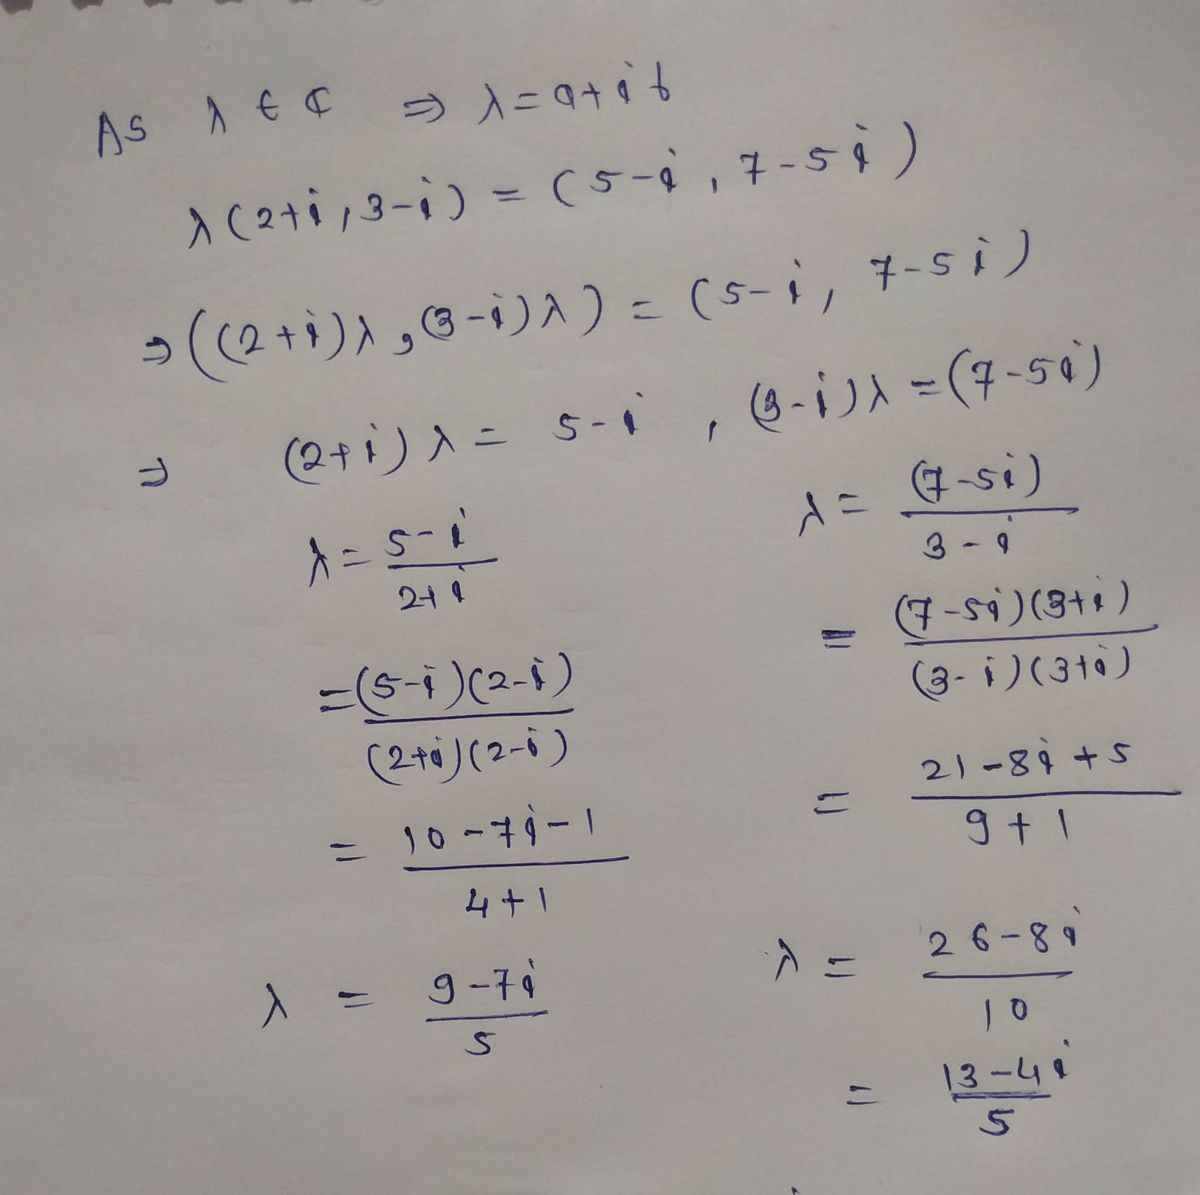 As λ ∈ ℂ ⇒ λ = a + ib
λ(2+i, 3-i) = (5-i, 7-5i)
⇒ ((2+i)λ, (3-i)λ) = (5-i, 7-5i)
⇒ (2+i)λ = 5-i , (3-i)λ = (7-5i)
λ = (5-i)/(2+i)
= (5-i)(2-i)/(2+i)(2-i)
= 10-7i-1/4+1
λ = 9-7i/5
λ = (7-5i)/3-i
= (7-5i)(3+i)/(3-i)(3+i)
= 21-8i+5/9+1
λ = 26-8i/10
= 13-4i/5